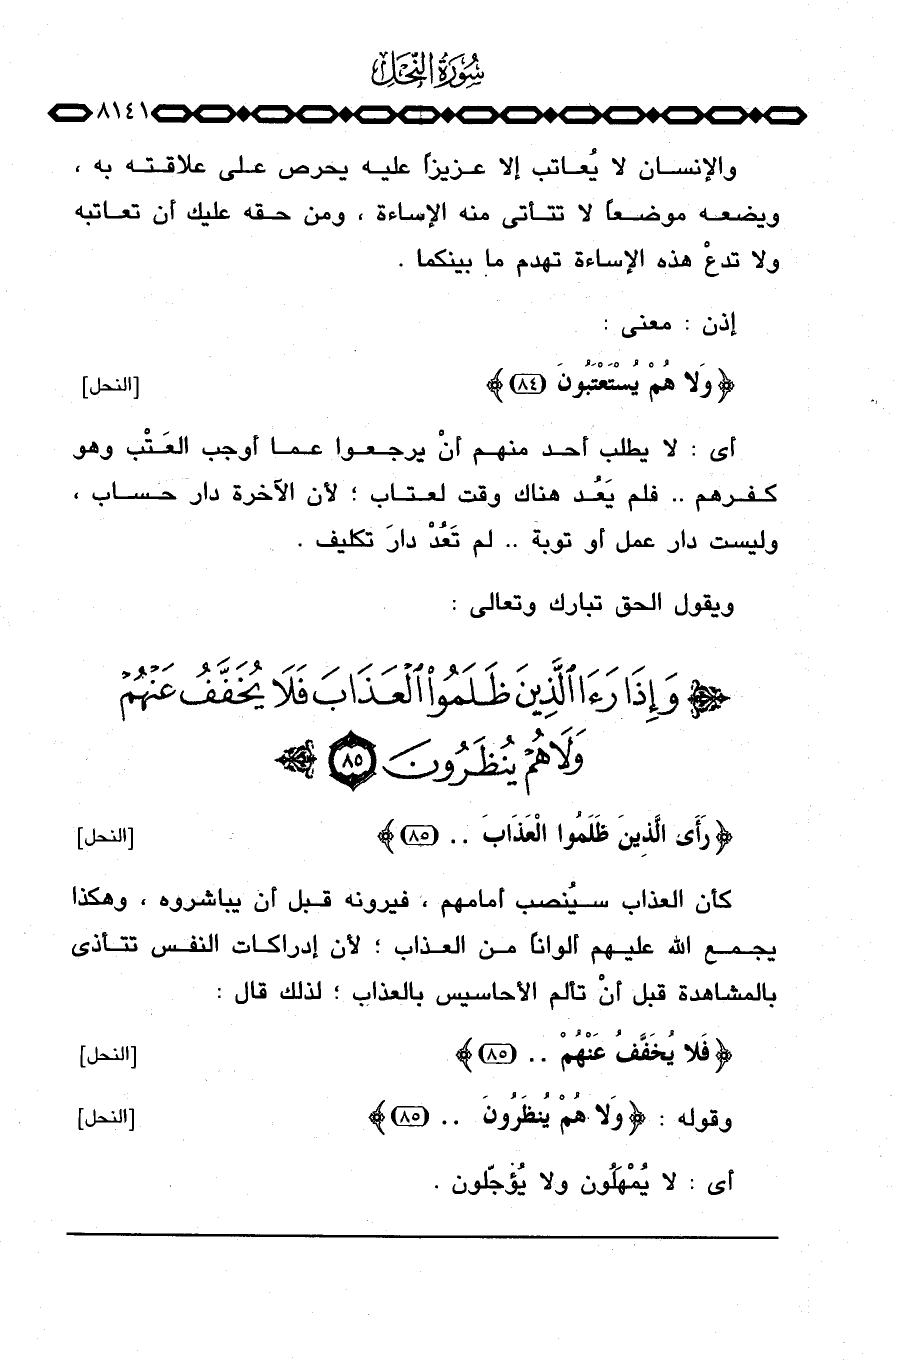 سُورَةُ النَّحْلِ
٨١٤١
والإنسان لا يُعاتب إلا عزيزاً عليه يحرص على علاقته به ،
ويضعه موضعاً لا تتأتى منه الإساءة ، ومن حقه عليك أن تعاتبه
ولا تدعْ هذه الإساءة تهدم ما بينكما .
إذن : معنى :
﴿ وَلا هُمْ يُسْتَعْتَبُونَ (٨٤) ﴾ [النحل]
أى : لا يطلب أحد منهم أنْ يرجعوا عما أوجب العَتْب وهو
كفرهم .. فلم يَعُد هناك وقت لعتاب ؛ لأن الآخرة دار حساب ،
وليست دار عمل أو توبة .. لم تَعُدْ دارَ تكليف .
ويقول الحق تبارك وتعالى :
﴿ وَإِذَا رَءَا الَّذِينَ ظَلَمُوا الْعَذَابَ فَلَا يُخَفَّفُ عَنْهُمْ
وَلَا هُمْ يُنظَرُونَ ٨٥ ﴾
﴿ رَأَى الَّذِينَ ظَلَمُوا الْعَذَابَ .. (٨٥) ﴾ [النحل]
كأن العذاب سيُنصب أمامهم ، فيرونه قبل أن يباشروه ، وهكذا
يجمع الله عليهم ألواناً من العذاب ؛ لأن إدراكات النفس تتأذى
بالمشاهدة قبل أنْ تألم الأحاسيس بالعذاب ؛ لذلك قال :
﴿ فَلا يُخَفَّفُ عَنْهُمْ .. (٨٥) ﴾ [النحل]
وقوله : ﴿ وَلا هُمْ يُنظَرُونَ .. (٨٥) ﴾ [النحل]
أى : لا يُمْهلُون ولا يُؤجّلون .